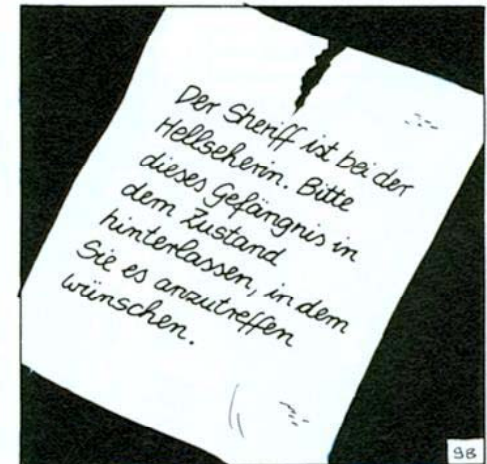 Der Sheriff ist bei der
Hellseherin. Bitte
dieses Gefängnis in
dem Zustand
hinterlassen, in dem
Sie es anzutreffen
wünschen.
98